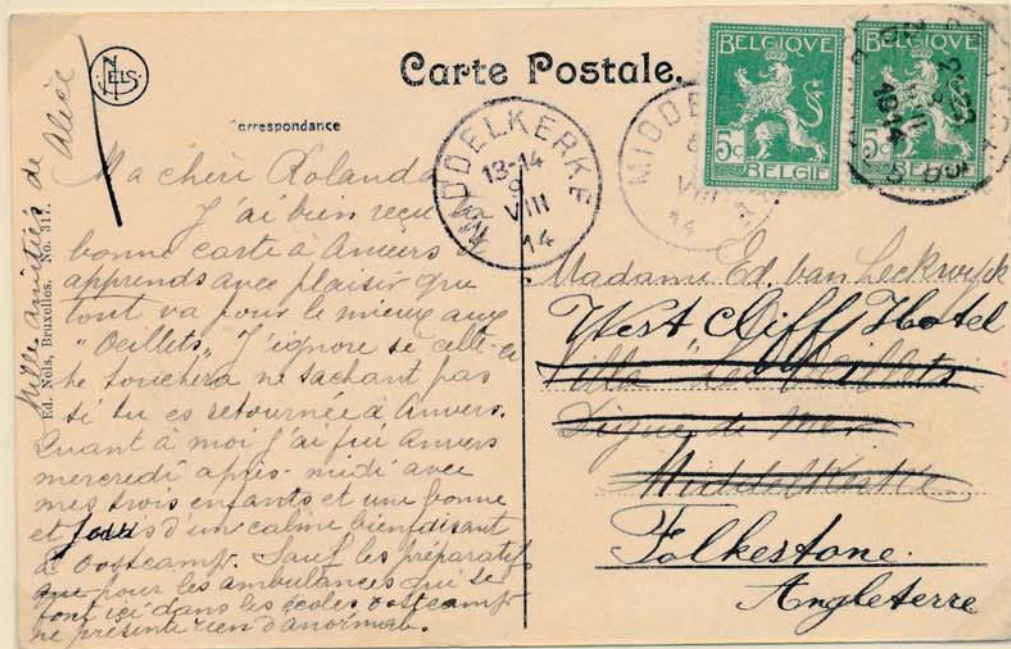 NELS
Carte Postale.
Correspondance
Ma chère Rolande
J'ai bien reçu ta
bonne carte à Anvers &
apprends avec plaisir que
tout va pour le mieux aux
"Oeillets" J'ignore si celle-ci
te touchera ne sachant pas
si tu es retournée à Anvers.
Quant à moi j'ai fui Anvers
mercredi après-midi avec
mes trois enfants et une bonne
et jouis d'un calme bienfaisant
à Oostcamp. Sauf les préparatifs
que pour les ambulances qui se
font ici dans les écoles Oostcamp
ne présente rien d'anormal.
Mille amitiés de Alice
Ed. Nels, Bruxelles. No. 317.
MIDDELKERKE
13-14
9
VIII
14
MIDDE
VIII
14
BELGIQVE
5c
BELGIE
BELGIQVE
5c
BELGIE
1914
Madame Ed. van Leckwyck
West Cliff Hotel
Villa "Les Oeillets
Digue de Mer
Middelkerke
Folkestone.
Angleterre